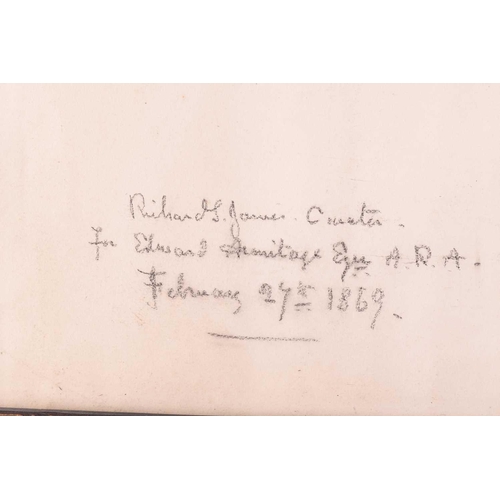 Richard S. James. Curator.
for Edward Armitage Esqre A.R.A.
February 27th 1869.